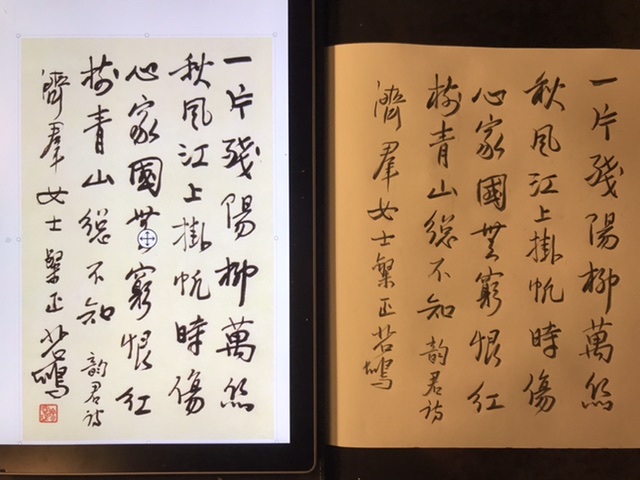 一片殘陽柳萬絲
秋風江上掛帆時傷
心家國無窮恨紅
樹青山總不知 韵君詩
濟羣女士粲正
一片殘陽柳萬絲
秋風江上掛帆時傷
心家國無窮恨紅
樹青山總不知 韵君詩
濟羣女士粲正